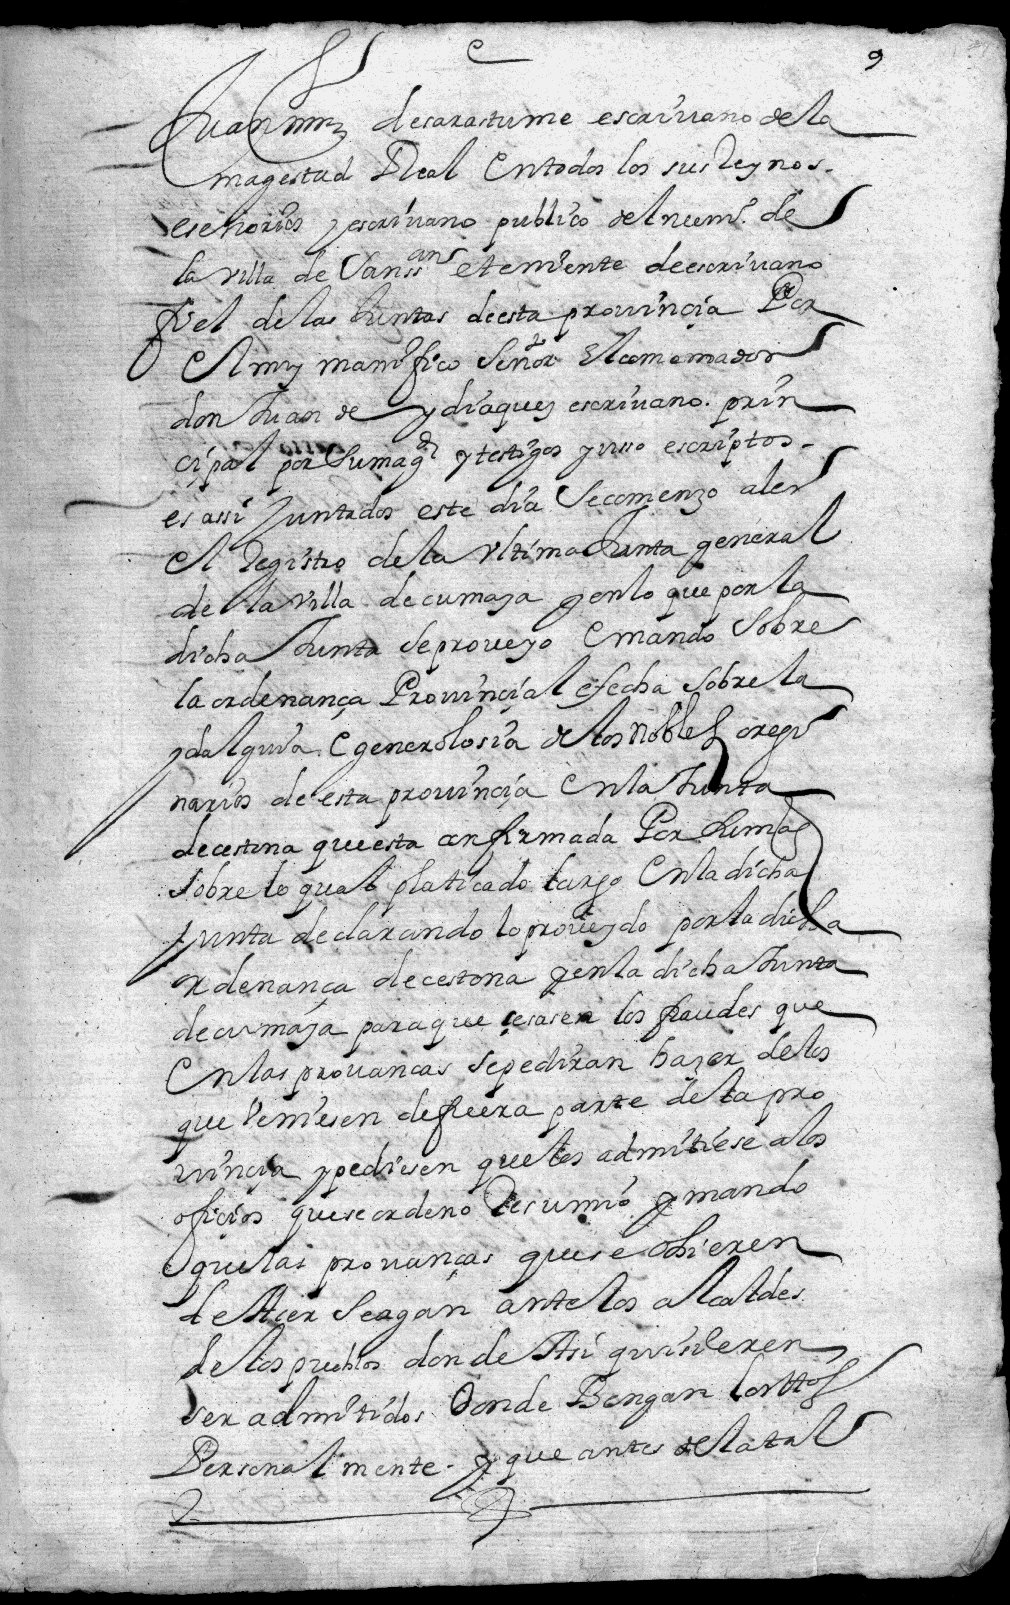 9
Juan mrz desarastume escriuano de la
magestad Real en todos los sus Reynos
e señorios y escriuano publico del num.º de
la villa de sans e teniente de escriuano
fiel de las Juntas de esta prouinçia Por
el muy manifico Señor el comemador
don Juan de ydiaquez escriuano prin
çipal por su magd y testigos yuso escriptos
es assi Juntados este dia se comenzo a ler
el Registro de la vltima Junta general
de la villa de cumaya y en lo que por la
dicha Junta se proueyo e mando sobre
la ordenança Prouinçial e fecha sobre la
ydalguia e generolosia de los nobles oregi
narios de esta prouinçia en la Junta
de cestona que esta confirmada Por su mag
sobre lo qual platicado largo en la dicha
junta declarando lo proueydo por la dicha
ordenança de cestona y en la dicha Junta
de cumaya para que çesasen los fraudes que
en las prouancas se pediran hazer de los
que veniesen de fuera parte de la pro
uinçia y pediesen que les admitiese a los
ofiçios que se ordeno Resumio y mando
que las prouanças que se obieren
de Açer se agan ante los alcaldes
de los pueblos donde Asi quisieren
ser admitidos donde Bengan los ttos
Personalmente y que antes de la tal